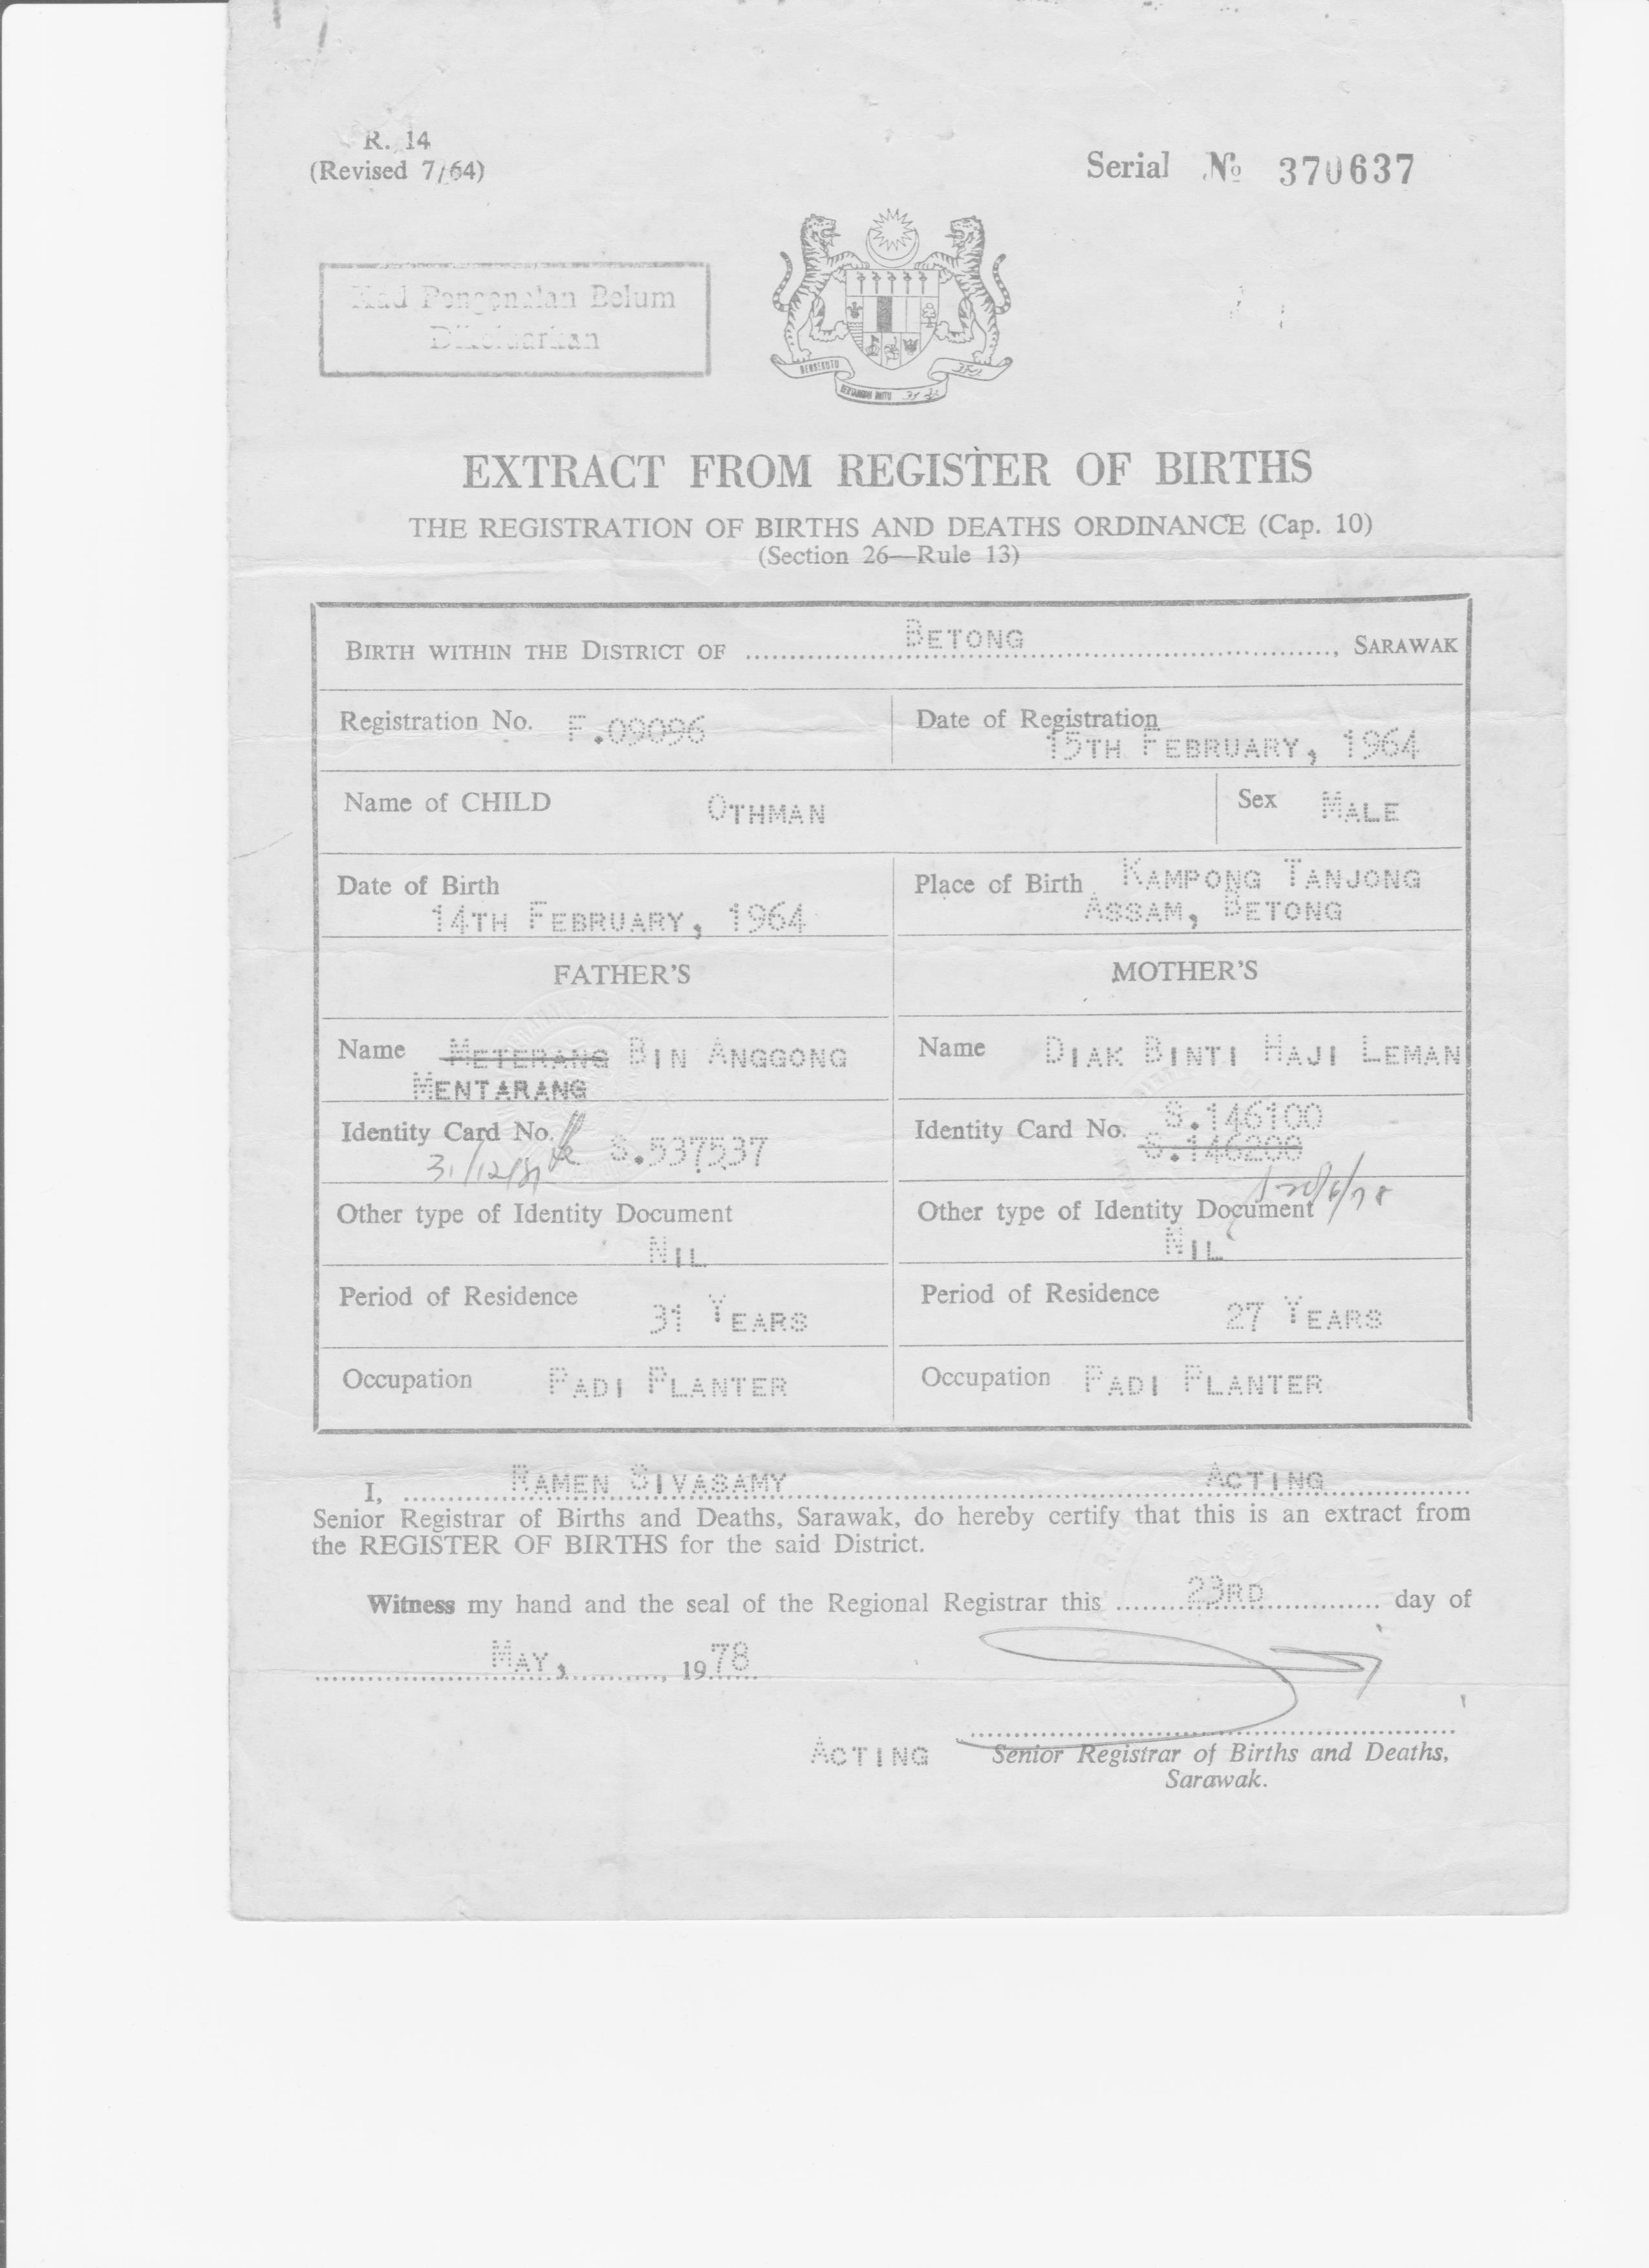 R. 14
(Revised 7/64)
Serial No 370637
Kad Pengenalan Belum
Dikeluarkan
BERSEKUTU
BERTAMBAH MUTU
EXTRACT FROM REGISTER OF BIRTHS
THE REGISTRATION OF BIRTHS AND DEATHS ORDINANCE (Cap. 10)
(Section 26—Rule 13)
BIRTH WITHIN THE DISTRICT OF BETONG, SARAWAK
Registration No. F.09096
Date of Registration
15TH FEBRUARY, 1964
Name of CHILD OTHMAN
Sex MALE
Date of Birth
14TH FEBRUARY, 1964
Place of Birth KAMPONG TANJONG
ASSAM, BETONG
FATHER'S
MOTHER'S
Name METERANG BIN ANGGONG
MENTARANG
Name DIAK BINTI HAJI LEMAN
Identity Card No. S.537537
31/12/81
S.146100
Identity Card No. S.146200
20/6/78
Other type of Identity Document
NIL
Other type of Identity Document
NIL
Period of Residence 31 YEARS
Period of Residence 27 YEARS
Occupation PADI PLANTER
Occupation PADI PLANTER
I, RAMEN SIVASAMY ACTING
Senior Registrar of Births and Deaths, Sarawak, do hereby certify that this is an extract from
the REGISTER OF BIRTHS for the said District.
Witness my hand and the seal of the Regional Registrar this 23RD day of
MAY, , 1978
ACTING Senior Registrar of Births and Deaths,
Sarawak.